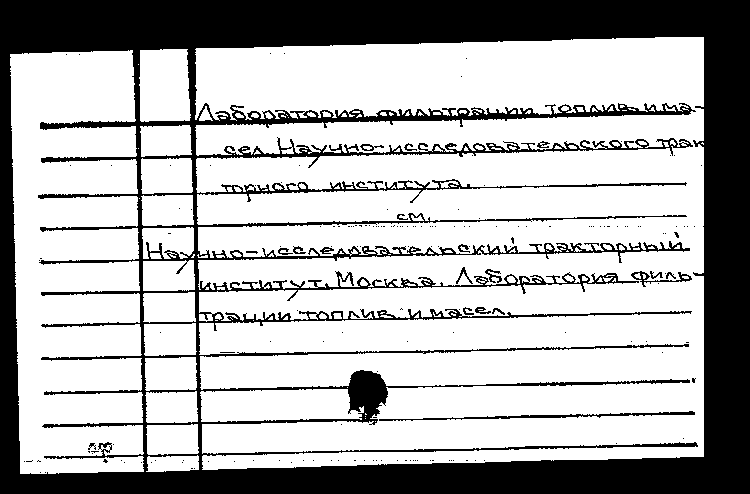 Лаборатория фильтрации топлив и ма-
сел Научно-исследовательского трак
торного института.
см.
Научно-исследовательский тракторный
институт, Москва. Лаборатория филь-
трации топлив и масел.